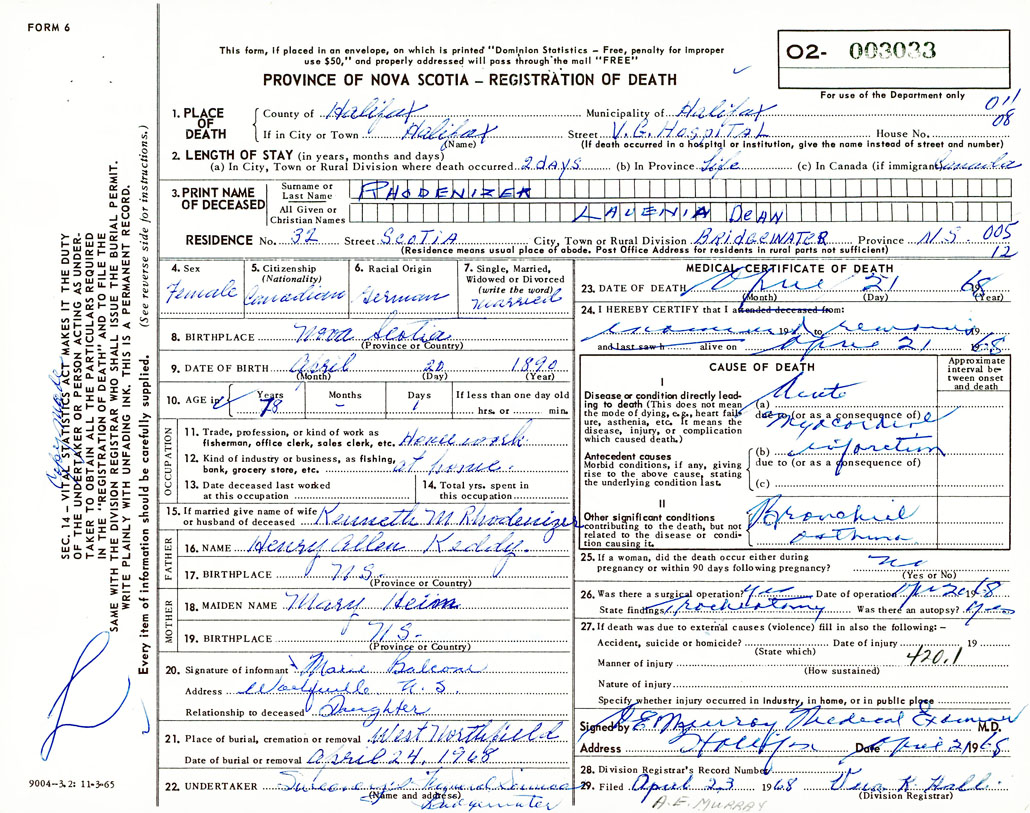 FORM 6
This form, if placed in an envelope, on which is printed "Dominion Statistics – Free, penalty for improper
use $50," and properly addressed will pass through the mail "FREE"
PROVINCE OF NOVA SCOTIA – REGISTRATION OF DEATH
O2- 003033
For use of the Department only
011
08
1. PLACE OF DEATH
County of Halifax Municipality of Halifax
If in City or Town Halifax Street V.G. HOSPITAL House No.
(Name) (If death occurred in a hospital or institution, give the name instead of street and number)
2. LENGTH OF STAY (in years, months and days)
(a) In City, Town or Rural Division where death occurred 2 days (b) In Province Life (c) In Canada (if immigrant) Canada
3. PRINT NAME OF DECEASED
Surname or Last Name RHODENIZER
All Given or Christian Names LAVENIA DEAN
RESIDENCE No. 32 Street SCOTIA City, Town or Rural Division BRIDGEWATER Province N.S. 005
(Residence means usual place of abode. Post Office Address for residents in rural parts not sufficient) 12
4. Sex Female
5. Citizenship (Nationality) Canadian
6. Racial Origin German
7. Single, Married, Widowed or Divorced (write the word) Married
8. BIRTHPLACE Nova Scotia
(Province or Country)
9. DATE OF BIRTH April 20 1890
(Month) (Day) (Year)
10. AGE in Years 78 Months - Days 1 If less than one day old
hrs. or min.
OCCUPATION
11. Trade, profession, or kind of work as
fisherman, office clerk, sales clerk, etc. House work
12. Kind of industry or business, as fishing,
bank, grocery store, etc. at home.
13. Date deceased last worked
at this occupation
14. Total yrs. spent in
this occupation
15. If married give name of wife
or husband of deceased Kenneth M Rhodenizer
FATHER
16. NAME Henry Allen Keddy.
17. BIRTHPLACE N S.
(Province or Country)
MOTHER
18. MAIDEN NAME Mary Heim
19. BIRTHPLACE N S-
(Province or Country)
20. Signature of informant Marie Balcom
Address Wolfville N. S.
Relationship to deceased Daughter
21. Place of burial, cremation or removal West Northfield
Date of burial or removal April 24, 1968
22. UNDERTAKER
(Name and address)
Bridgewater
MEDICAL CERTIFICATE OF DEATH
23. DATE OF DEATH April 21 68
(Month) (Day) (Year)
24. I HEREBY CERTIFY that I attended deceased from:
examined 19 to remains 19
and last saw h alive on April 21 1968
CAUSE OF DEATH
Approximate interval between onset and death
I
Disease or condition directly leading to death (This does not mean the mode of dying, e.g., heart failure, asthenia, etc. It means the disease, injury, or complication which caused death.)
(a) Acute
due to (or as a consequence of)
Myocardial
Antecedent causes
Morbid conditions, if any, giving rise to the above cause, stating the underlying condition last.
(b) infarction
due to (or as a consequence of)
(c)
II
Other significant conditions
contributing to the death, but not related to the disease or condition causing it.
Bronchial
asthma
25. If a woman, did the death occur either during
pregnancy or within 90 days following pregnancy? no
(Yes or No)
26. Was there a surgical operation? Yes Date of operation Apr 20 1968
State findings Tracheotomy Was there an autopsy? Yes
27. If death was due to external causes (violence) fill in also the following: –
Accident, suicide or homicide? Date of injury 19
(State which)
Manner of injury 420.1
(How sustained)
Nature of injury
Specify whether injury occurred in Industry, in home, or in public place
Signed by A E Murray Medical Examiner M.D.
Address Halifax Date April 21 1968
28. Division Registrar's Record Number
29. Filed April 23 1968 Vera K. Hall
(Division Registrar)
A.E. MURRAY
SEC. 14 – VITAL STATISTICS ACT MAKES IT THE DUTY
OF THE UNDERTAKER OR PERSON ACTING AS UNDER-
TAKER TO OBTAIN ALL THE PARTICULARS REQUIRED
IN THE "REGISTRATION OF DEATH" AND TO FILE THE
SAME WITH THE DIVISION REGISTRAR WHO SHALL ISSUE THE BURIAL PERMIT.
WRITE PLAINLY WITH UNFADING INK. THIS IS A PERMANENT RECORD.
Every item of information should be carefully supplied. (See reverse side for instructions.)
9004–3.2: 11-3-65